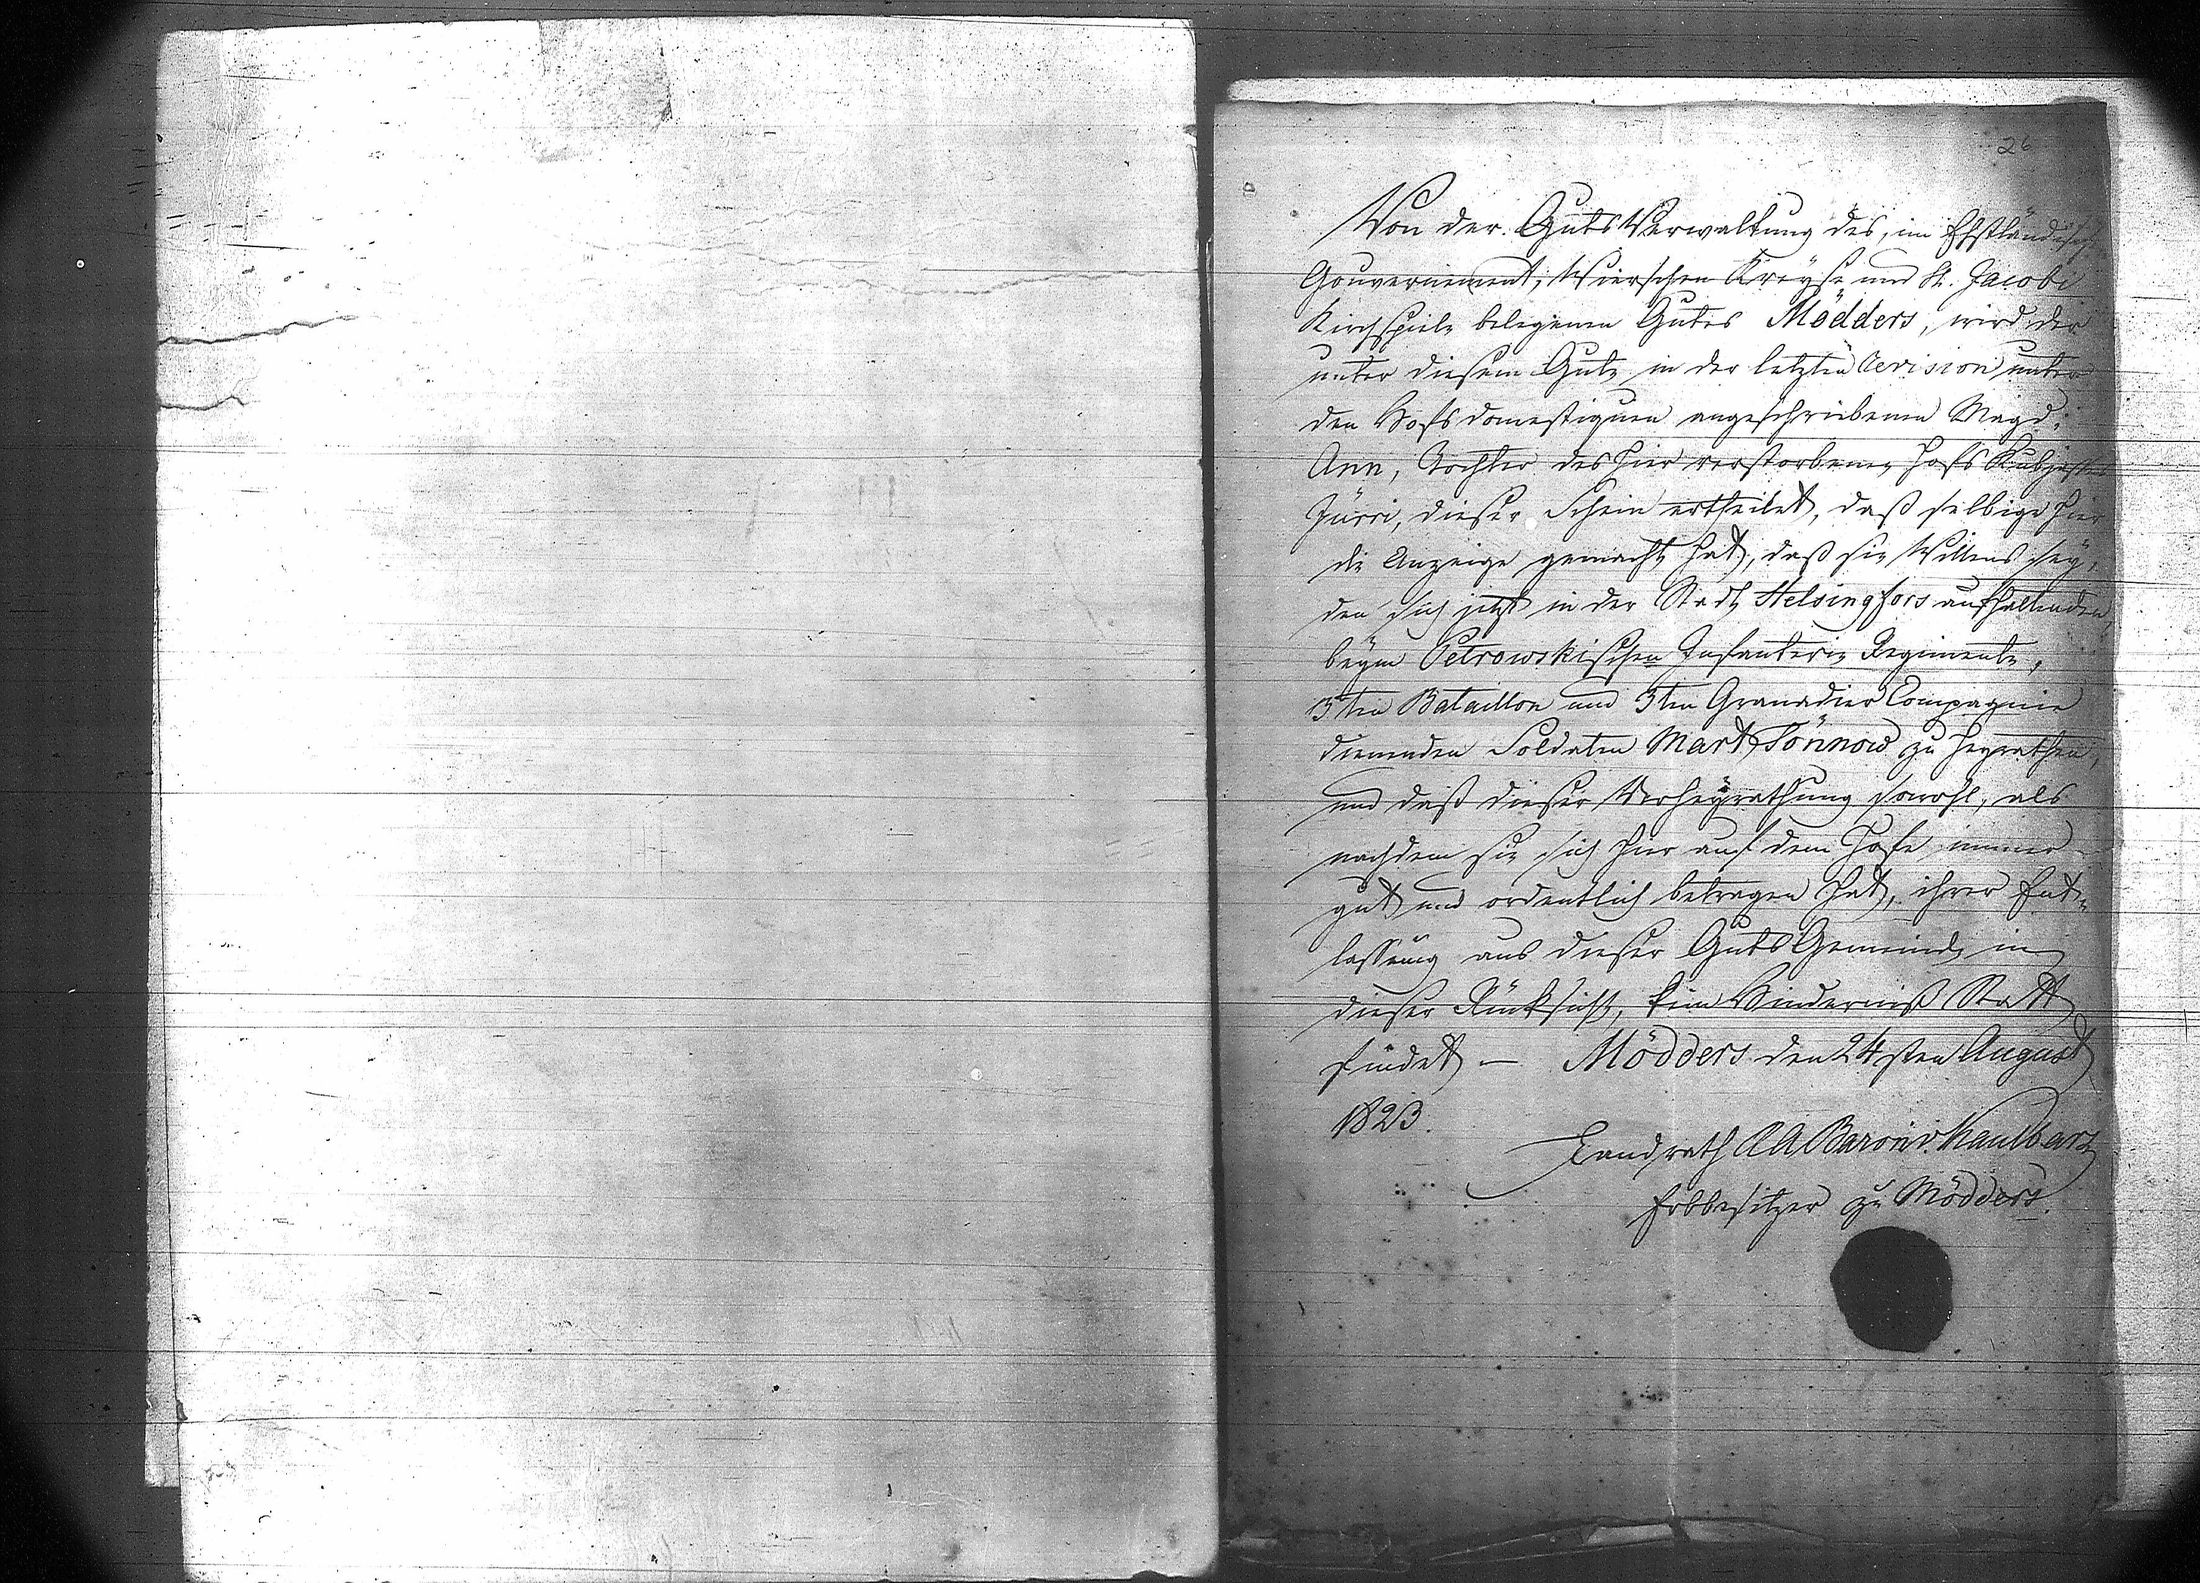 26
Von der Guts Verwaltung des, im Ehstländischen
Gouvernement, Wierschen Kreÿse und St. Jacobi
Kirchspiele belegenen Gutes Mödders, wird der
unter diesem Gute in der letzten Revision unter
den Hofsdomestiquen angeschriebenen Magd:
Ann, Tochter des hier verstorbenen Hofs Kubjasses
Jürri, dieser Schein ertheilet, daß selbige hier
die Anzeige gemacht hat, daß sie Willens seÿ,
den sich jetzt in der Stadt Helsingfors aufhaltenden,
beÿm Petrowskischen Infanterie Regimente,
3ten Bataillon und 3ten Granadier Compagnie
dienenden Soldaten Mart Tönnow zu heÿrathen,
und daß dieser Verheÿrathung sowohl, als
nachdem sie sich hier auf dem Hofe immer
gut und ordentlich betragen hat, ihrer Ent-
lassung aus dieser Guts Gemeinde in
dieser Rücksicht, kein Hinderniß Statt
findet — Mödders den 24sten August
1823.
Landrath R A Baron v. Kaulbars
Erbbesitzer zu Mödders.